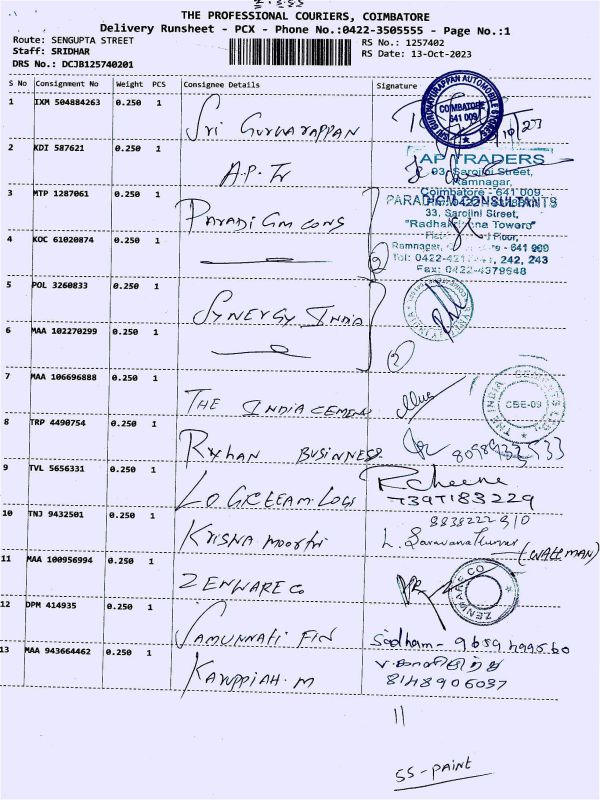 THE PROFESSIONAL COURIERS, COIMBATORE
Delivery Runsheet - PCX - Phone No.:0422-3505555 - Page No.:1
Route: SENGUPTA STREET RS No.: 1257402
Staff: SRIDHAR RS Date: 13-Oct-2023
DRS No.: DCJB125740201
S No Consignment No Weight PCS Consignee Details Signature
1 IXM 504884263 0.250 1 Sri Gurvarappan
COIMBATORE
641 009
2 KDI 587621 0.250 1 A.P. Tr
AP TRADERS
93, Sarojini Street,
Ramnagar,
Coimbatore - 641 009.
3 MTP 1287061 0.250 1 Paradigm cons
PARADIGM CONSULTANTS
33, Sarojini Street,
4 KOC 61020874 0.250 1
Ramnagar, - 641 009
242, 243
Fax: 0422-4379648
2
5 POL 3260833 0.250 1 Synergy India
6 MAA 102270299 0.250 1
2
7 MAA 106696888 0.250 1 The India Cement
THE INDIA CEMENTS LTD
CBE-09
8 TRP 4490754 0.250 1 Business
9 TVL 5656331 0.250 1 Logicteam. Logs R.cheena
7397183229
10 TNJ 9432501 0.250 1 Krisna Moorthi L. Saravana Kumar
(WATCHMAN)
11 MAA 100956994 0.250 1 Zenware Co
ZENWARE CO
12 DPM 414935 0.250 1 Samunnati Fin
13 MAA 943664462 0.250 1 Karuppiah. M
8148906037
11
SS-PAINT